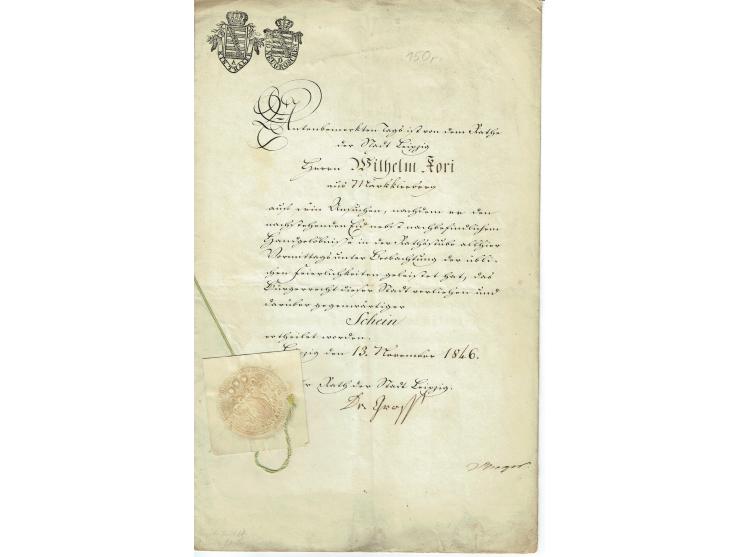 150 r
Untenbemerkten Tags ist von dem Rathe
der Stadt Leipzig
Herrn Wilhelm Fori
aus Markkleeberg
auf sein Ansuchen, nachdem er den
nachstehenden Eid nebst nachbefindlichem
Handgelöbnisse in der Rathsstube allhier
Vormittags unter Beobachtung der übli-
chen Feierlichkeiten geleistet hat, das
Bürgerrecht dieser Stadt verliehen und
darüber gegenwärtiger
Schein
ertheilet worden.
Leipzig den 13. November 1846.
Der Rath der Stadt Leipzig.
Dr. Gross